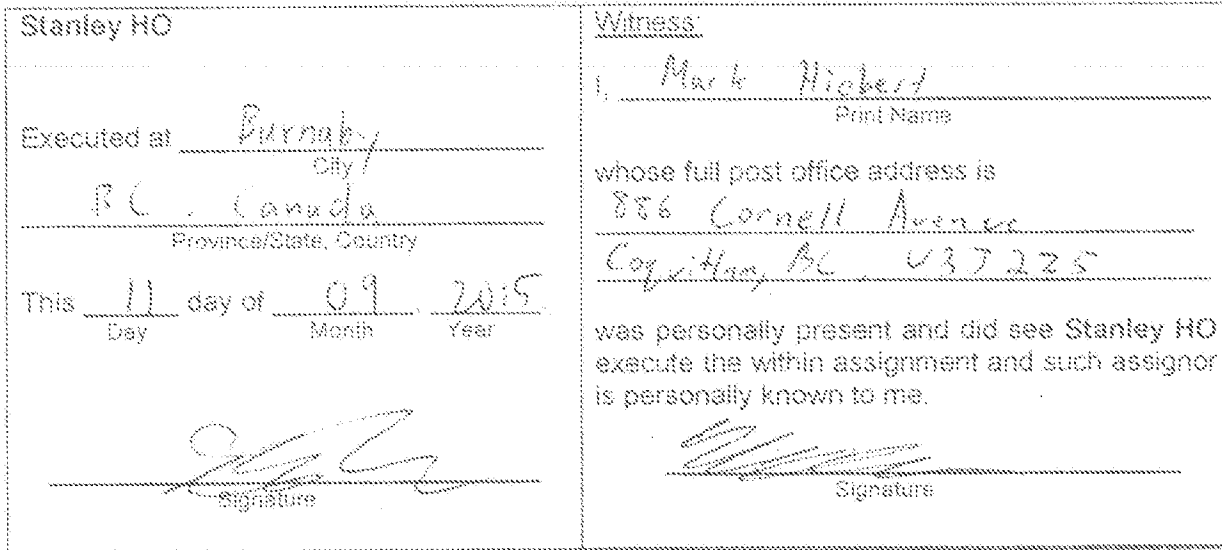 Stanley HO
Executed at Burnaby
City
BC. Canada
Province/State, Country
This 11 day of 09, 2015
Day Month Year
Signature
Witness:
I, Mark Hiebert
Print Name
whose full post office address is
886 Cornell Avenue
Coquitlam, BC, V3J 2Z5
was personally present and did see Stanley HO
execute the within assignment and such assignor
is personally known to me.
Signature